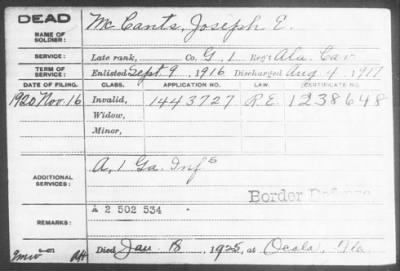 DEAD
NAME OF SOLDIER: McCants, Joseph E.
SERVICE: Late rank, Co. G 1 Reg't Ala. Cav
TERM OF SERVICE: Enlisted Sept. 9, 1916 Discharged Aug 4, 1917
DATE OF FILING. CLASS. APPLICATION NO. LAW. CERTIFICATE NO.
1920 Nov. 16 Invalid, 1443727 R.E. 1238648
Widow,
Minor,
ADDITIONAL SERVICES: A, 1 Ga. Inf
Border Defense
A 2 502 534
REMARKS:
Died Jan. 18, 1925, at Ocala, Fla